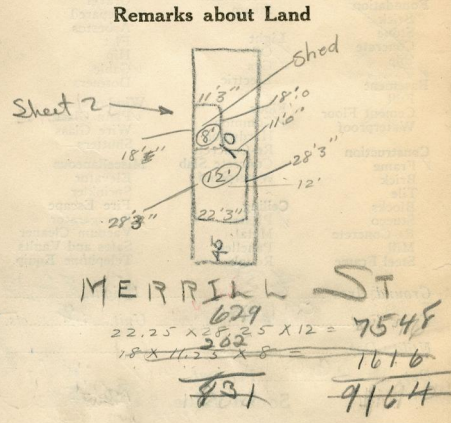 Remarks about Land
Shed
Sheet 2
11'3"
18'.0
8'
11'0"
18'6"
28'3"
12'
12'
28'3"
22'3"
MERRILL ST
629
22.25 x 28.25 x 12 = 7548
202
18 x 11.25 x 8 = 1616
831 9164